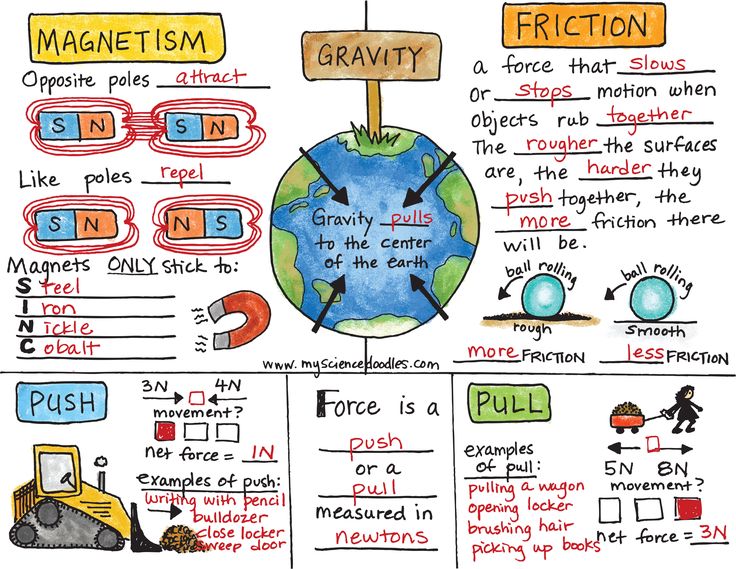 MAGNETISM
Opposite poles attract
S N S N
Like poles repel
S N N S
Magnets ONLY stick to:
Steel
Iron
Nickle
Cobalt
GRAVITY
Gravity pulls
to the center
of the earth
www.mysciencedoodles.com
FRICTION
a force that slows
or stops motion when
objects rub together
The rougher the surfaces
are, the harder they
push together, the
more friction there
will be.
ball rolling
rough
more FRICTION
ball rolling
smooth
less FRICTION
PUSH
3N 4N
movement?
net force = 1N
examples of push:
writing with pencil
bulldozer
close locker
sweep door
Force is a
push
or a
pull
measured in
newtons
PULL
examples
of pull:
pulling a wagon
opening locker
brushing hair
picking up books
5N 8N
movement?
net force = 3N